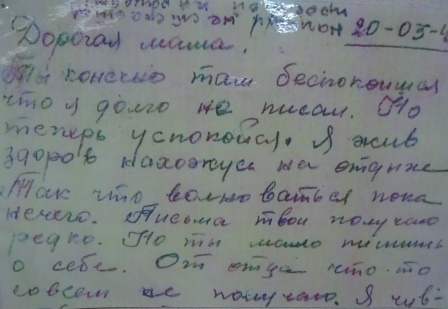 20-05-4
Дорогая мама.
Ты конешно там беспокоишся
что я долго не писал. Но
теперь успокойся. Я жив
здоров нахожусь на отдыхе
Так что волноваться пока
нечего. Письма твои получаю
редко. Но ты мало пишишь
о себе. От отца что-то
совсем не получаю. Я чув-